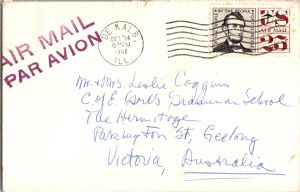 AIR MAIL
PAR AVION
DE KALB
DEC 14
PM
1962
ILL.
BY THE PEOPLE
US
AIR MAIL
25
Mr. & Mrs. Leslie Coggins
C of E Girls Grammar School
The Hermitage
Pakington St, Geelong
Victoria, Australia